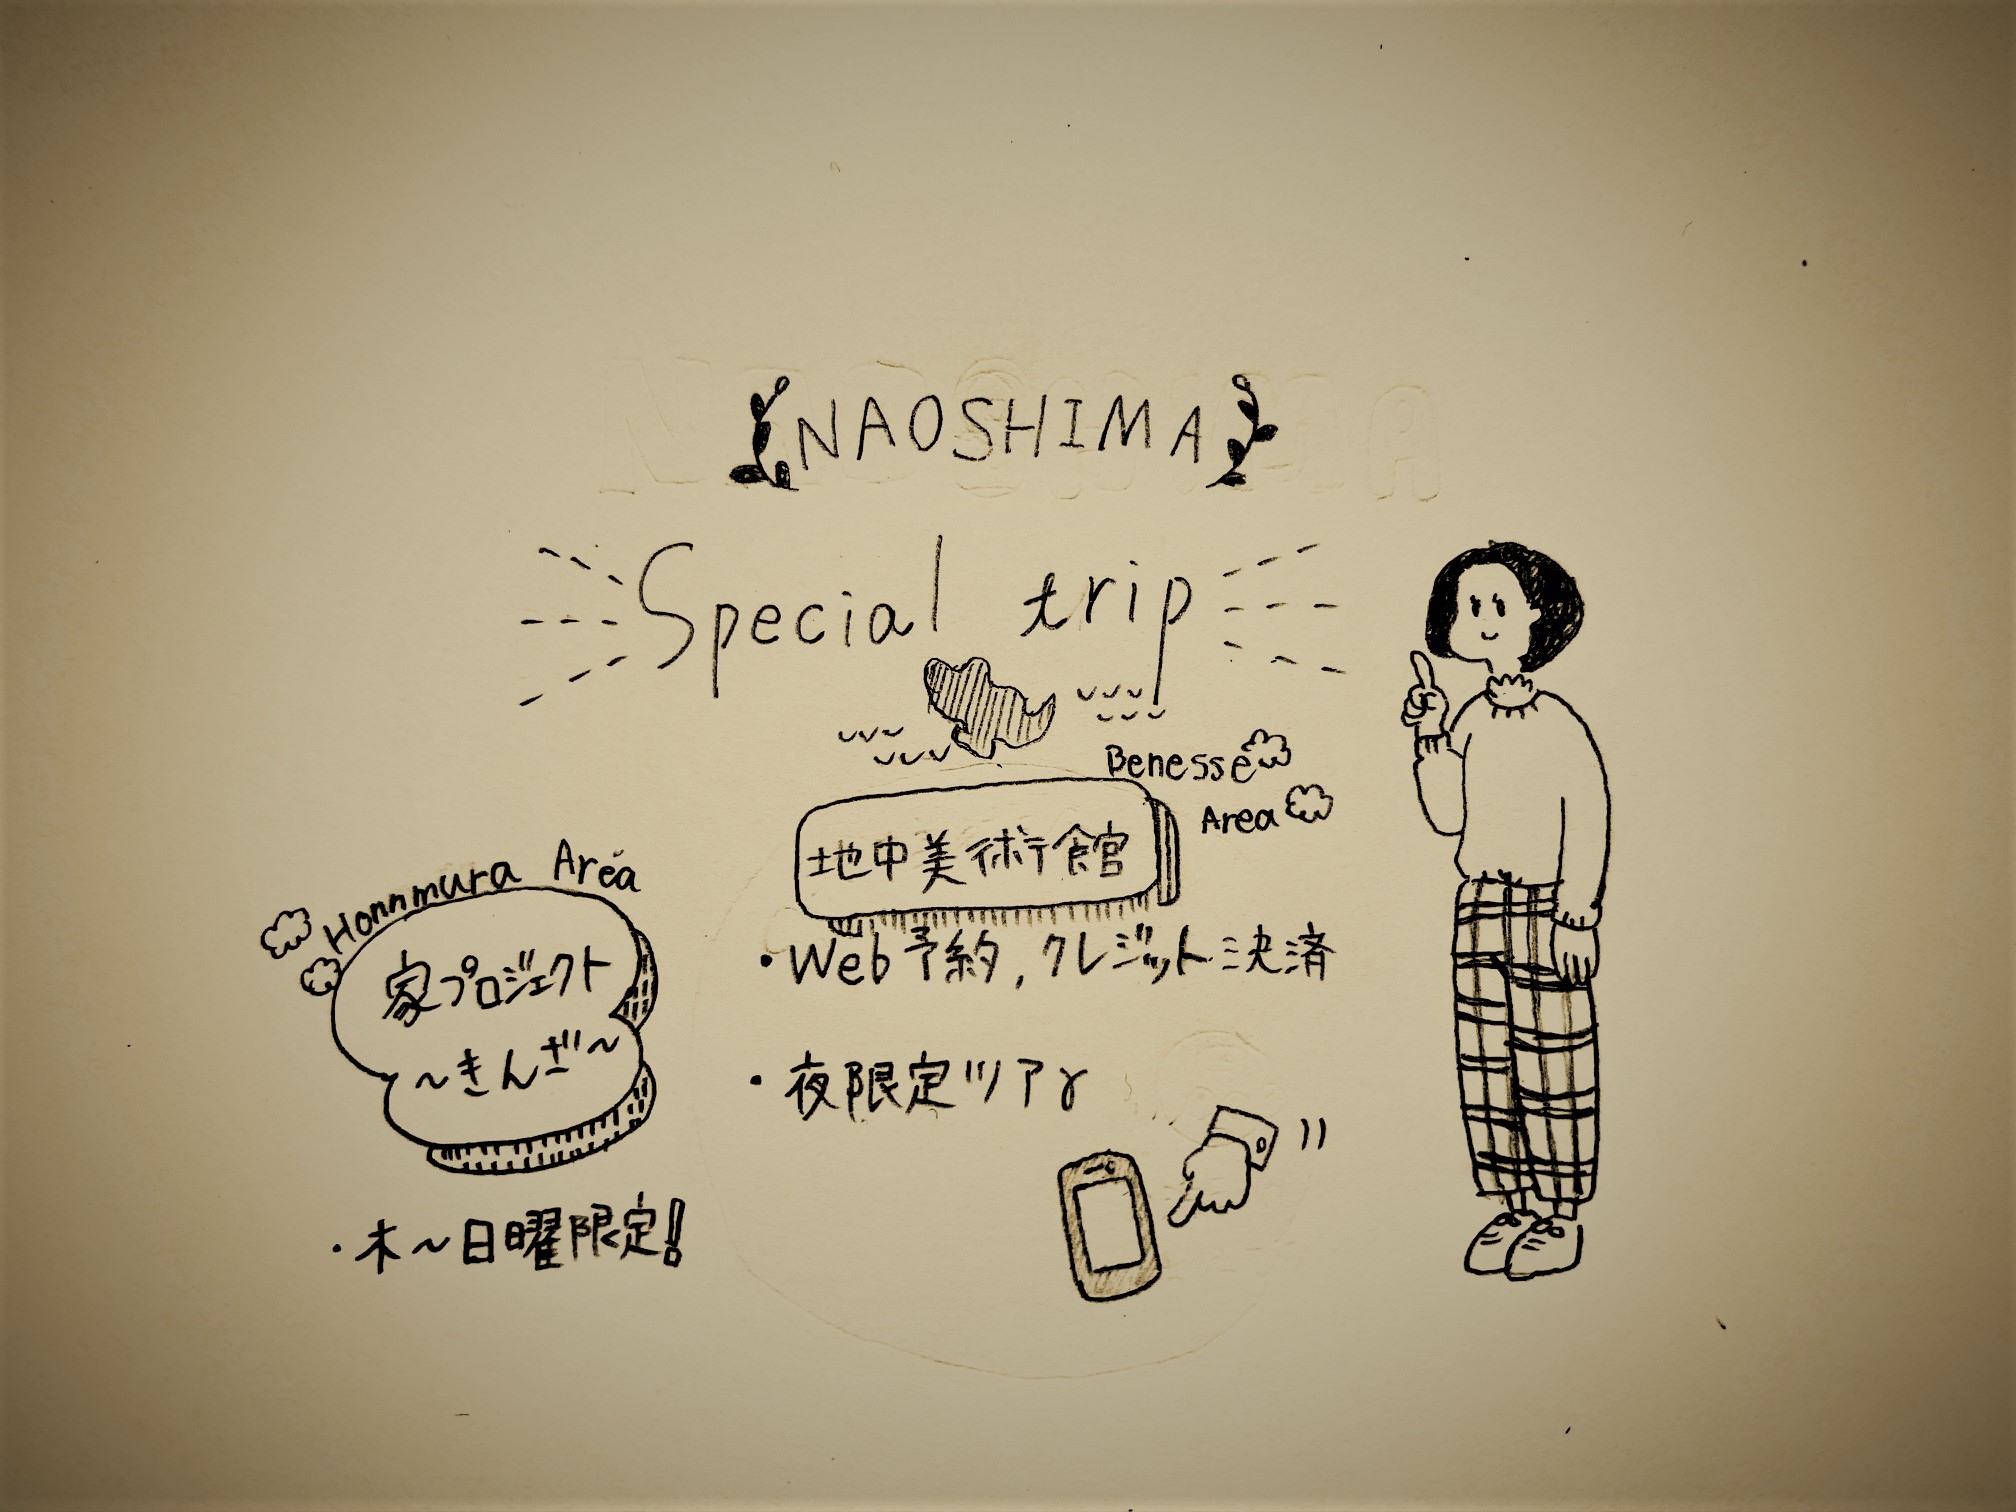 NAOSHIMA
Special trip
Benesse
Area
地中美術館
・Web予約,クレジット決済
・夜限定ツアァ
Honnmura Area
家プロジェクト
~きんざ~
・木~日曜限定!